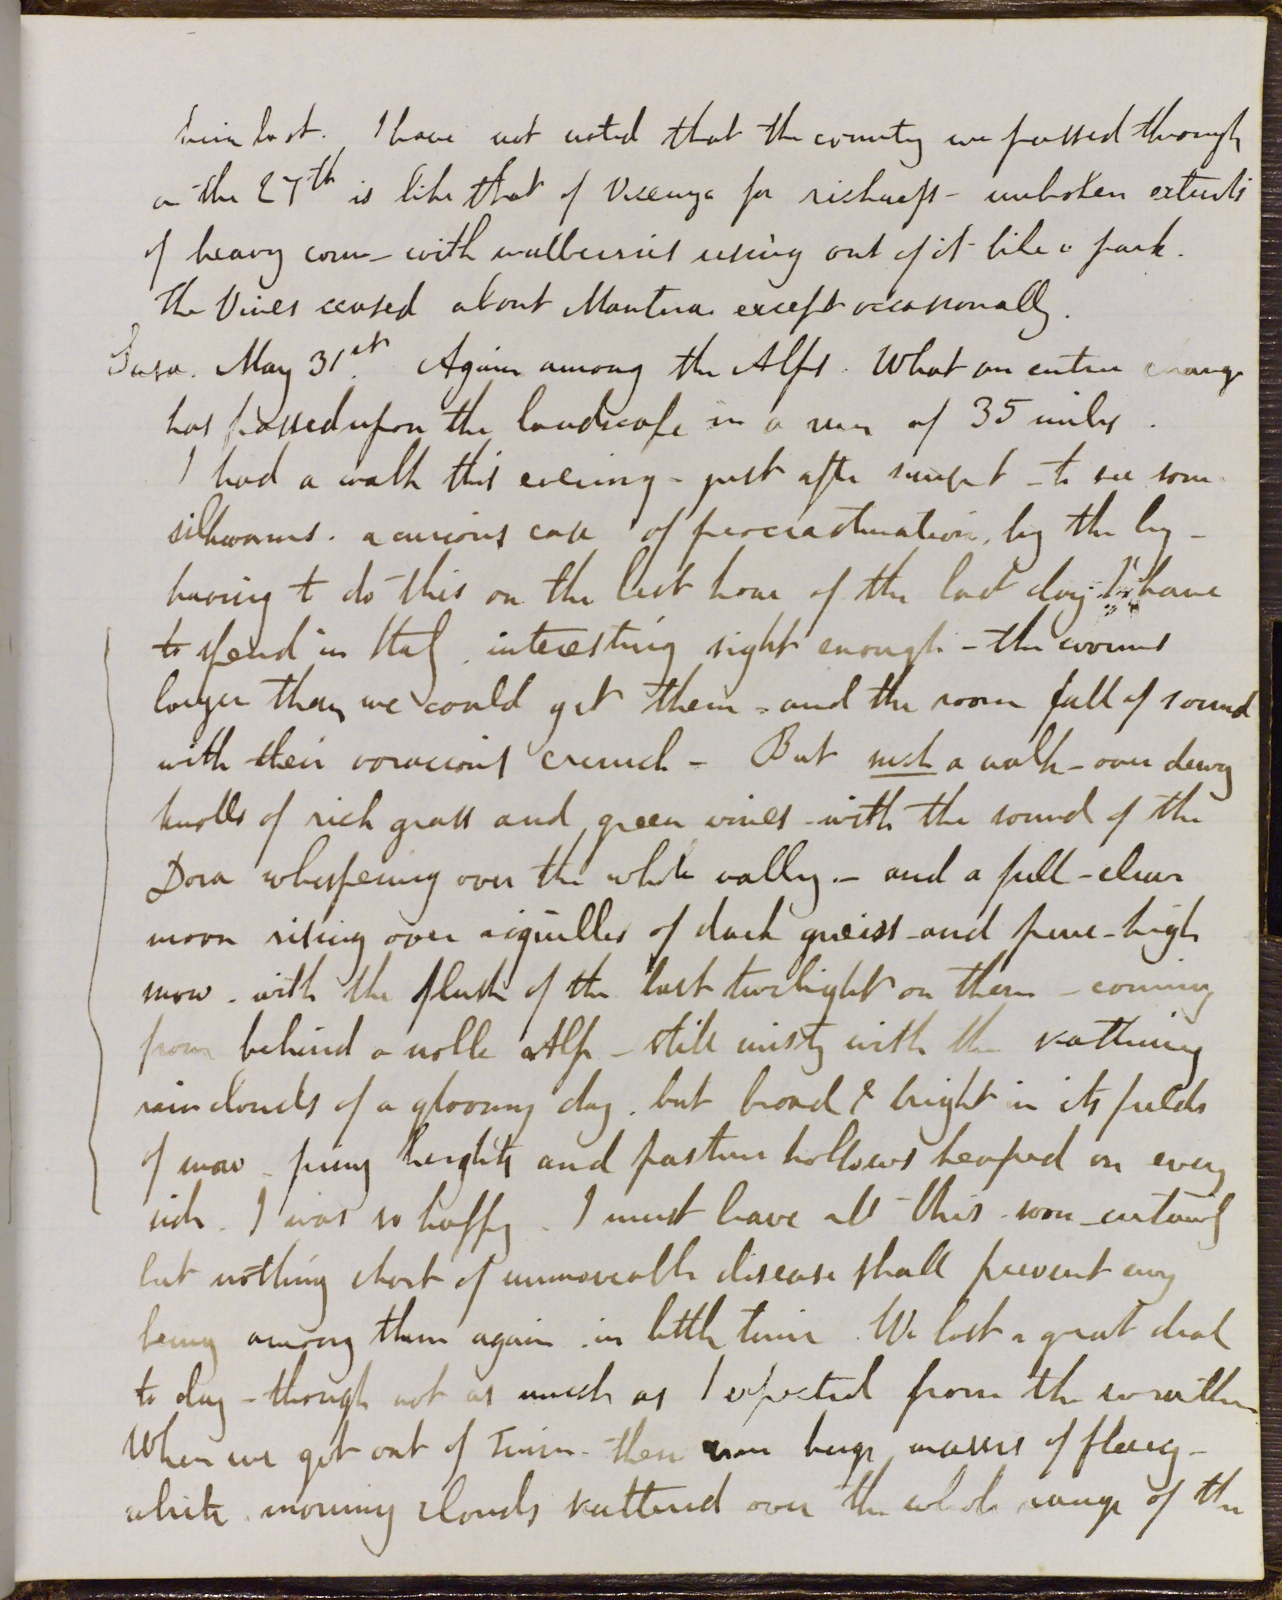 being lost. I have not noted that the country we passed through
on the 27th is like that of Vicenza for richness - unbroken extents
of heavy corn - with mulberries rising out of it like a park.
The Vines ceased about Mantua except occasionally.
Susa. May 31st. Again among the Alps. What an entire change
has passed upon the landscape in a run of 35 miles.
I had a walk this evening - just after sunset - to see some
silkworms. a curious case of procrastination, by the by -
having to do this on the last hour of the last day I have
to spend in Italy. interesting sight enough - the worms
larger than we could get them - and the room full of sound
with their voracious crunch - But such a walk - over dewy
knolls of rich grass and green vines - with the sound of the
Dora whispering over the whole valley. - and a full - clear
moon rising over aiguilles of dark gneiss - and pure - high
snow. with the flush of the last twilight on them - coming
from behind a noble Alp - still misty with the scattering
rainclouds of a gloomy day. but broad & bright in its fields
of snow - piny heights and pasture hollows heaped on every
side. I was so happy. I must leave all this soon - certainly
but nothing short of immoveable disease shall prevent my
being among them again in little time. We lost a great deal
to day - though not as much as I expected from the weather
When we got out of Turin - there were huge masses of fleecy -
white morning clouds scattered over the whole range of the